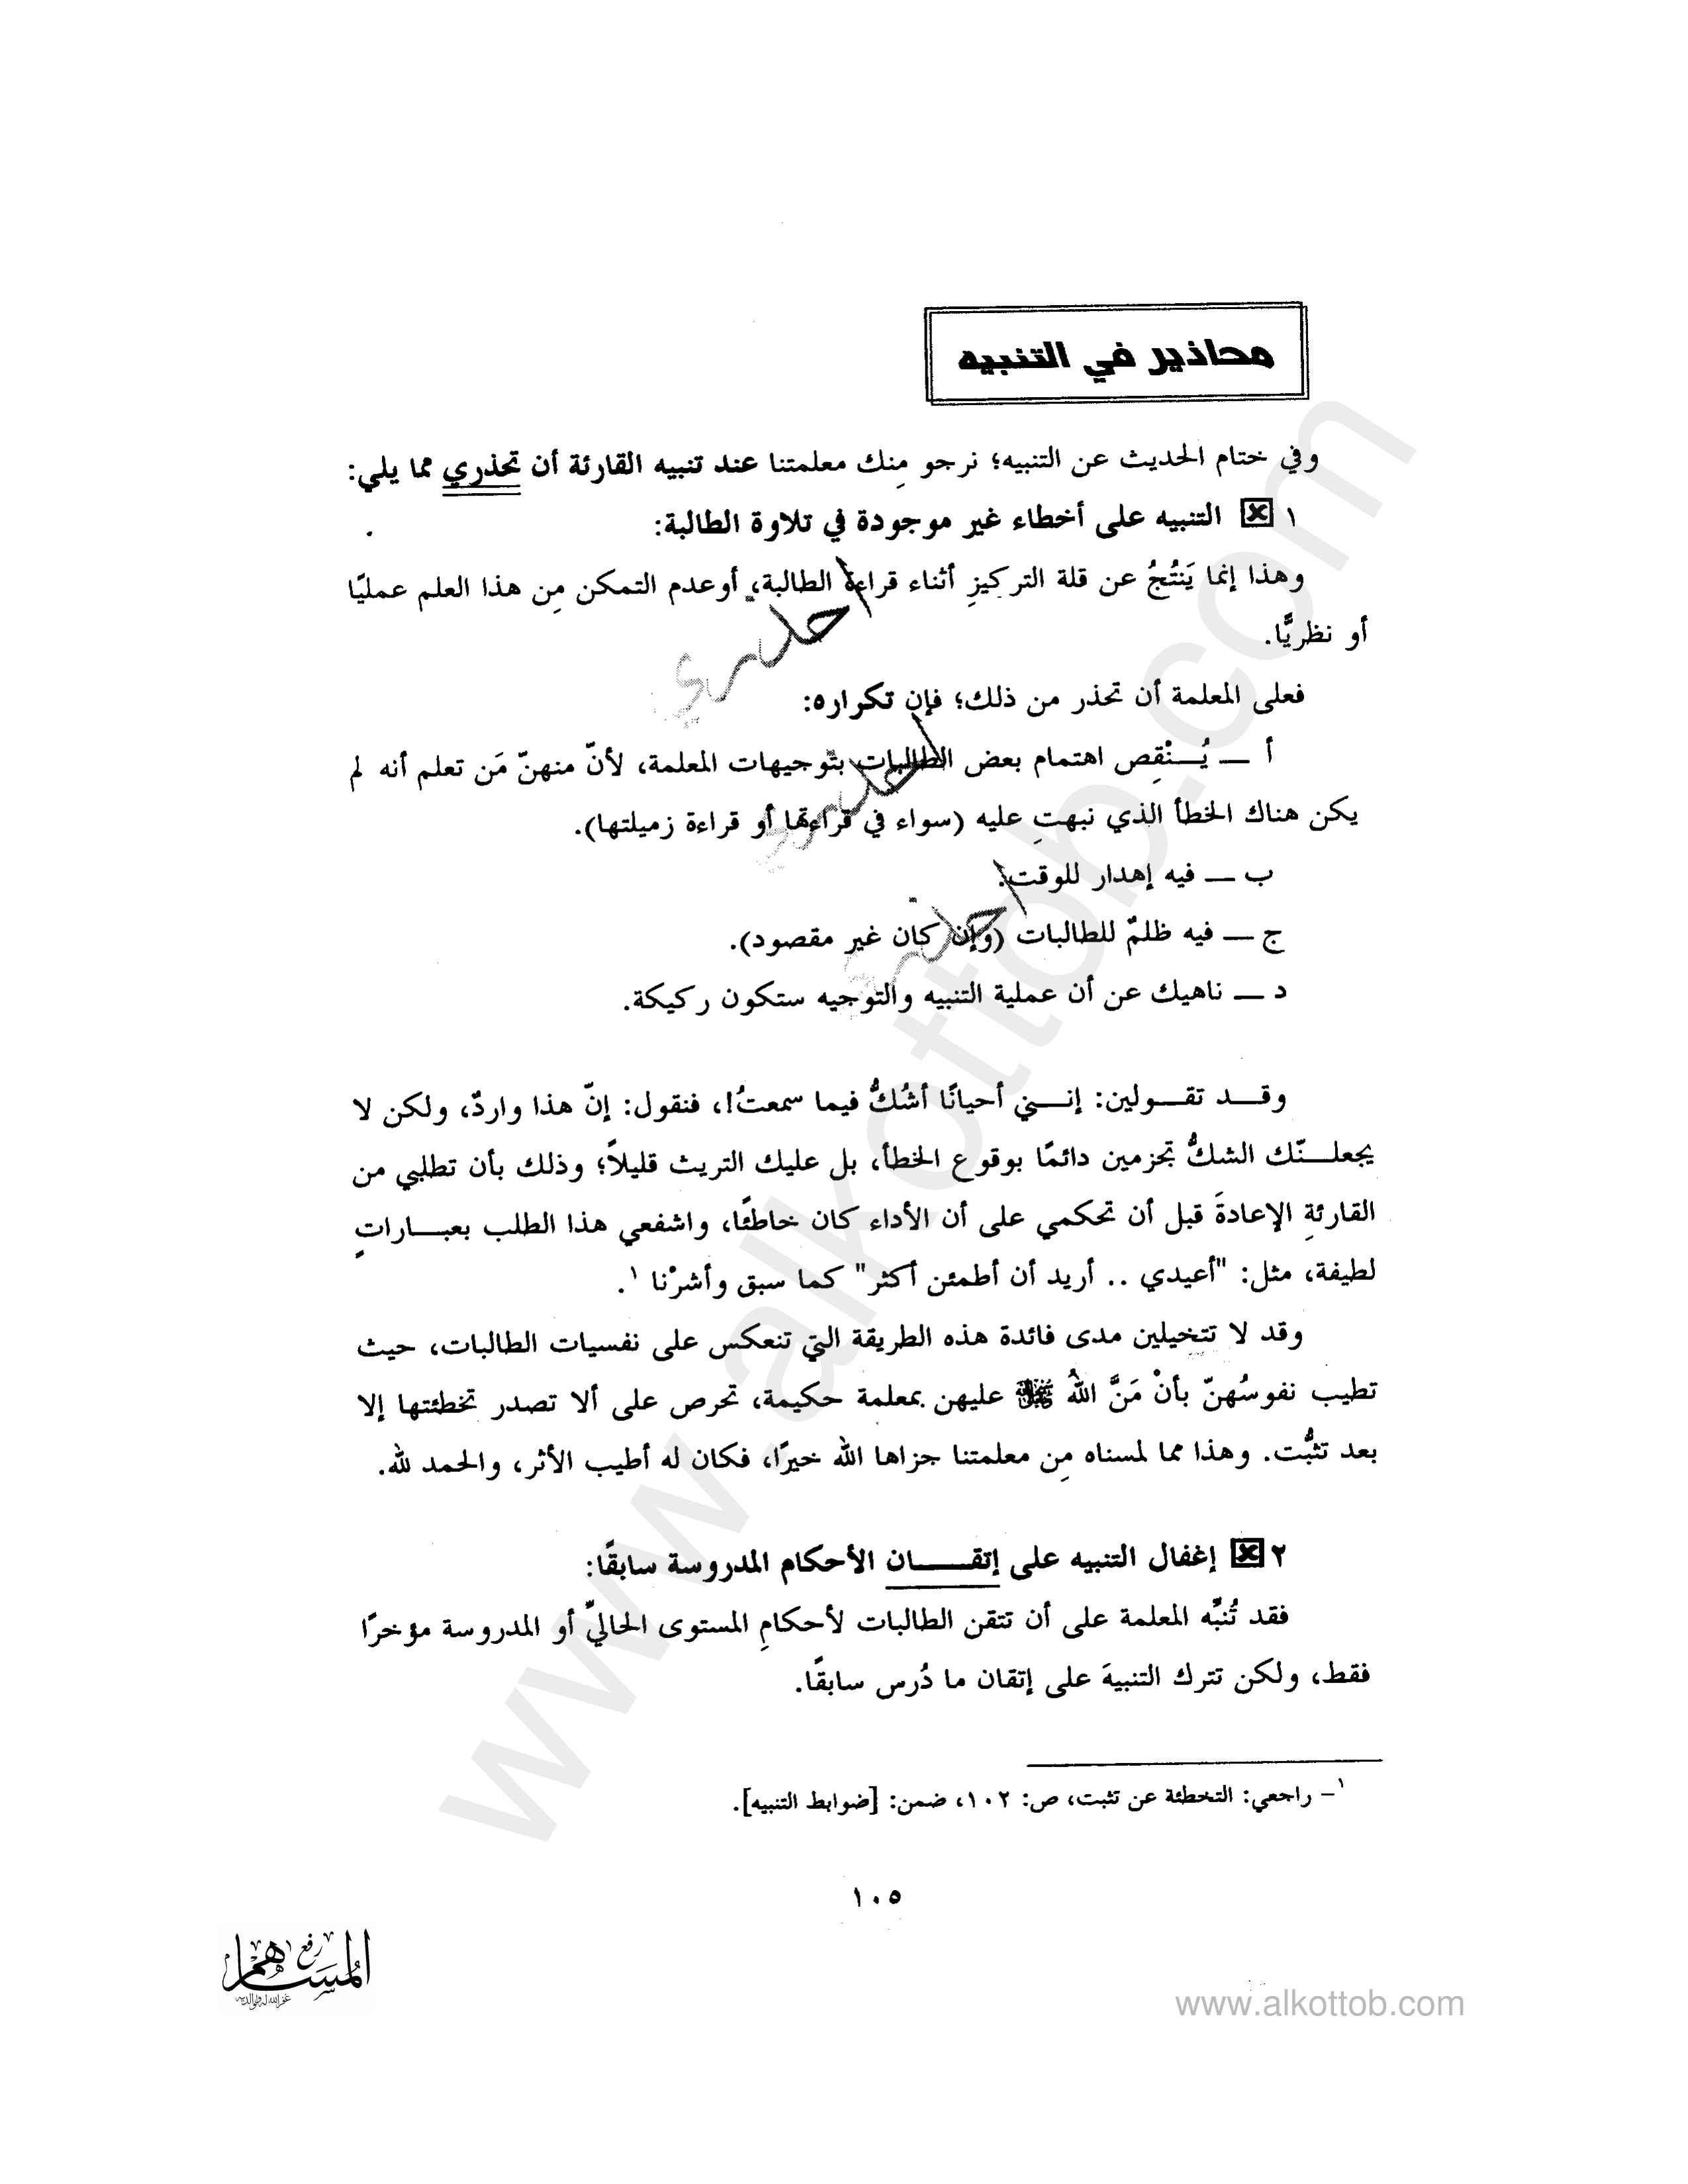 محاذير في التنبيه
وفي ختام الحديث عن التنبيه؛ نرجو مِنك معلمتنا عند تنبيه القارئة أن تحذري مما يلي:
١ ☒ التنبيه على أخطاء غير موجودة في تلاوة الطالبة:
وهذا إنما يَنتُجُ عن قلة التركيزِ أثناء قراءة الطالبة، أوعدم التمكن مِن هذا العلم عمليًّا
أو نظريًّا.
احذري
فعلى المعلمة أن تحذر من ذلك؛ فإن تكراره:
أ ـــ يُـــنْقِص اهتمام بعض الطالبات بتوجيهات المعلمة، لأنّ منهنّ مَن تعلم أنه لم
احذري
يكن هناك الخطأ الذي نبهتِ عليه (سواء في قراءتها أو قراءة زميلتها).
ب ـــ فيه إهدار للوقت.
ج ـــ فيه ظلمٌ للطالبات (وإن كان غير مقصود).
احذري
د ـــ ناهيك عن أن عملية التنبيه والتوجيه ستكون ركيكة.
وقـــد تقـــولين: إنـــني أحيانًا أشُكُّ فيما سمعتُ!، فنقول: إنّ هذا واردٌ، ولكن لا
يجعلـــنّك الشكُّ تجزمين دائمًا بوقوع الخطأ، بل عليك التريث قليلاً؛ وذلك بأن تطلبي من
القارئةِ الإعادةَ قبل أن تحكمي على أن الأداء كان خاطئًا، واشفعي هذا الطلب بعبـــاراتٍ
لطيفة، مثل: "أعيدي .. أريد أن أطمئن أكثر" كما سبق وأشرْنا ١.
وقد لا تتخيلين مدى فائدة هذه الطريقة التي تنعكس على نفسيات الطالبات، حيث
تطيب نفوسُهنّ بأنْ مَنَّ اللهُ عليهن بمعلمة حكيمة، تحرص على ألا تصدر تخطئتها إلا
بعد تثبُّت. وهذا مما لمسناه مِن معلمتنا جزاها الله خيرًا، فكان له أطيب الأثر، والحمد لله.
٢ ☒ إغفال التنبيه على إتقـــــان الأحكام المدروسة سابقًا:
فقد تُنبِّه المعلمة على أن تتقن الطالبات لأحكامِ المستوى الحاليِّ أو المدروسة مؤخرًا
فقط، ولكن تترك التنبيهَ على إتقان ما دُرس سابقًا.
١– راجعي: التخطئة عن تثبت، ص: ١٠٢، ضمن: [ضوابط التنبيه].
١٠٥
رفع
المساهم
غفر الله له ولوالديه
www.alkottob.com
www.alkottob.com